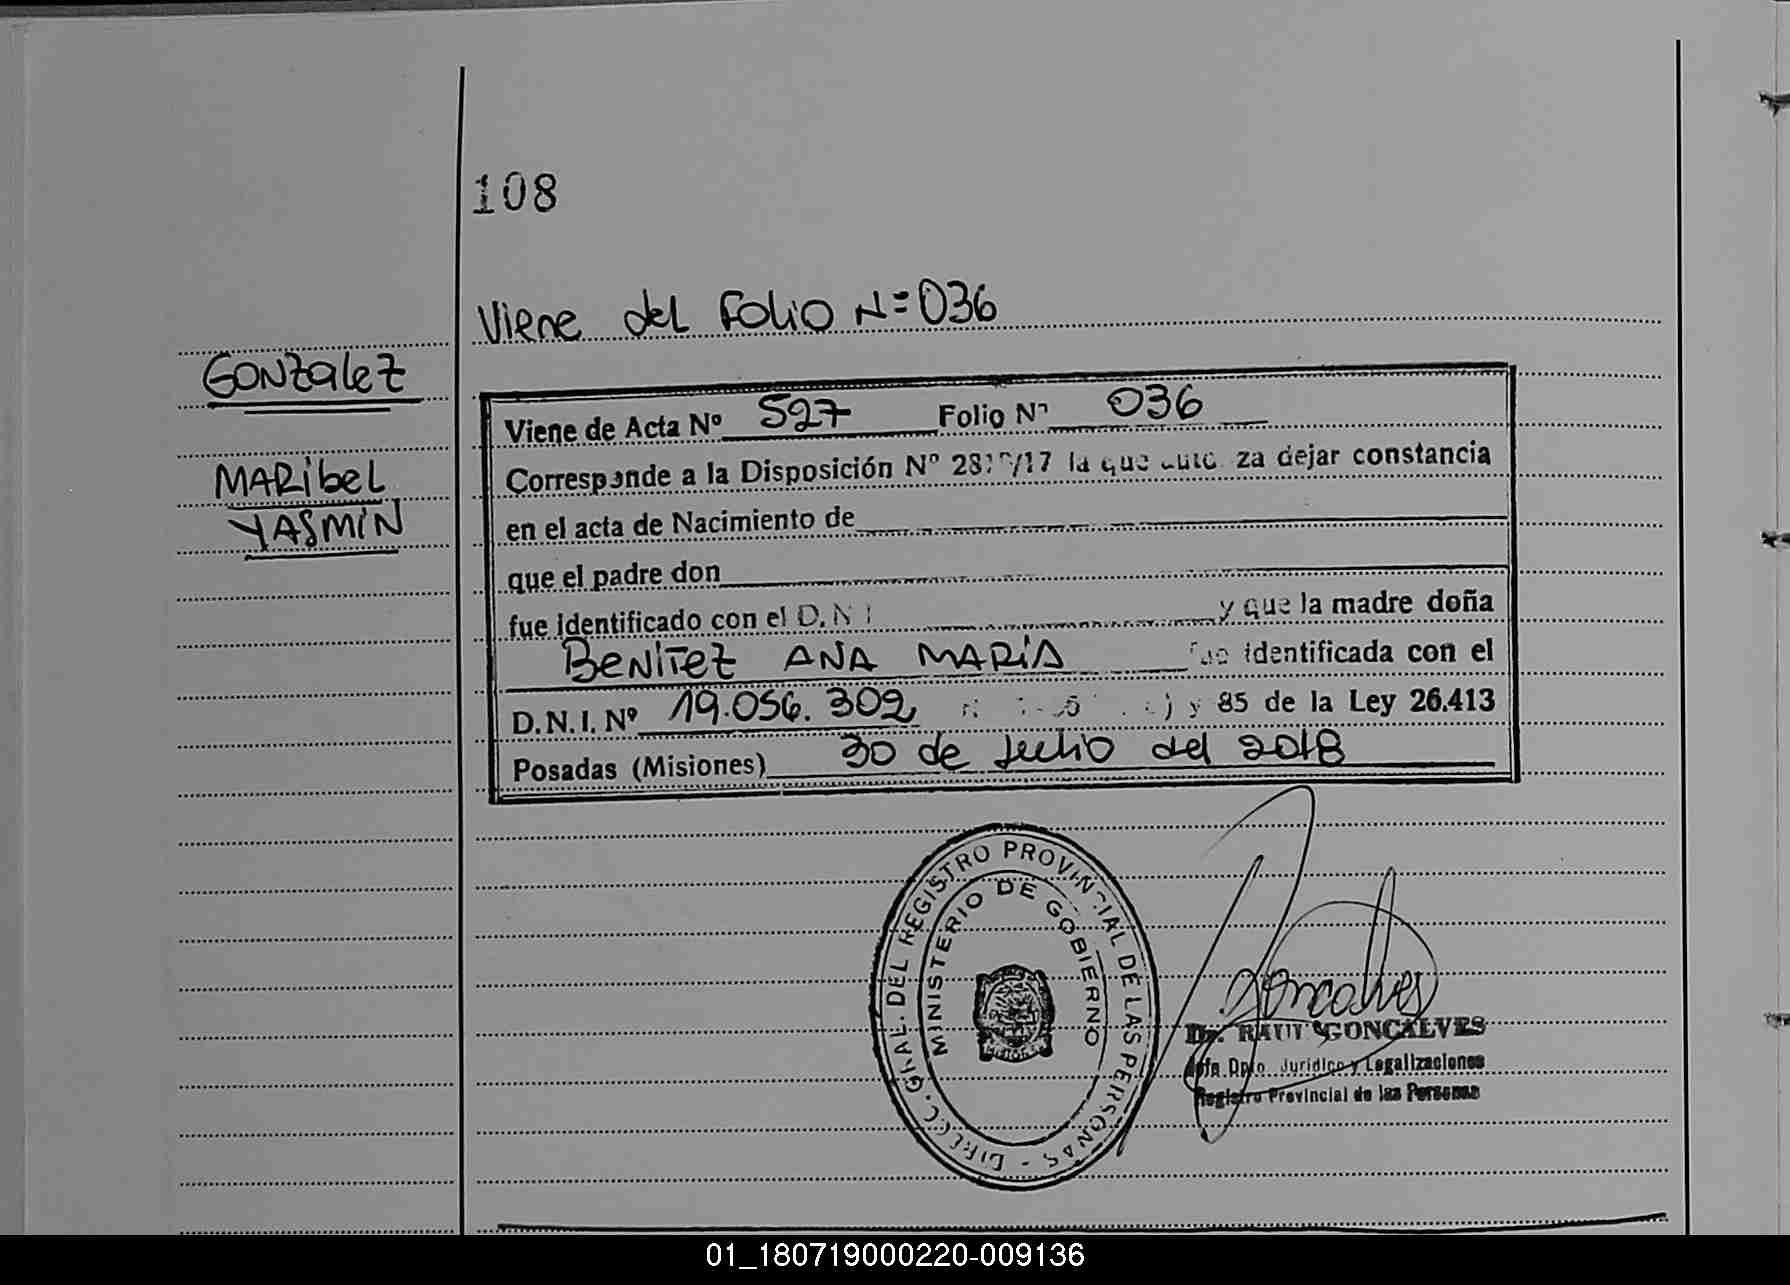 108
Viene del Folio N=036
GONZalez
MARibel
YASMIN
Viene de Acta Nº 527 Folio Nº 036
Corresponde a la Disposición Nº /17 la que za dejar constancia
en el acta de Nacimiento de
que el padre don
fue identificado con el D.N.I y que la madre doña
BeNiTeZ ANA MARIA identificada con el
D.N.I. Nº 19.056.302 y 85 de la Ley 26.413
Posadas (Misiones) 30 de Julio del 2018
DIRECC. GRAL. DEL REGISTRO PROVINCIAL DE LAS PERSONAS -
MINISTERIO DE GOBIERNO
MISIONES
Goncalves
Dr. RAUL GONCALVES
Dpto. Jurídico y Legalizaciones
Registro Provincial de las Personas
01_180719000220-009136